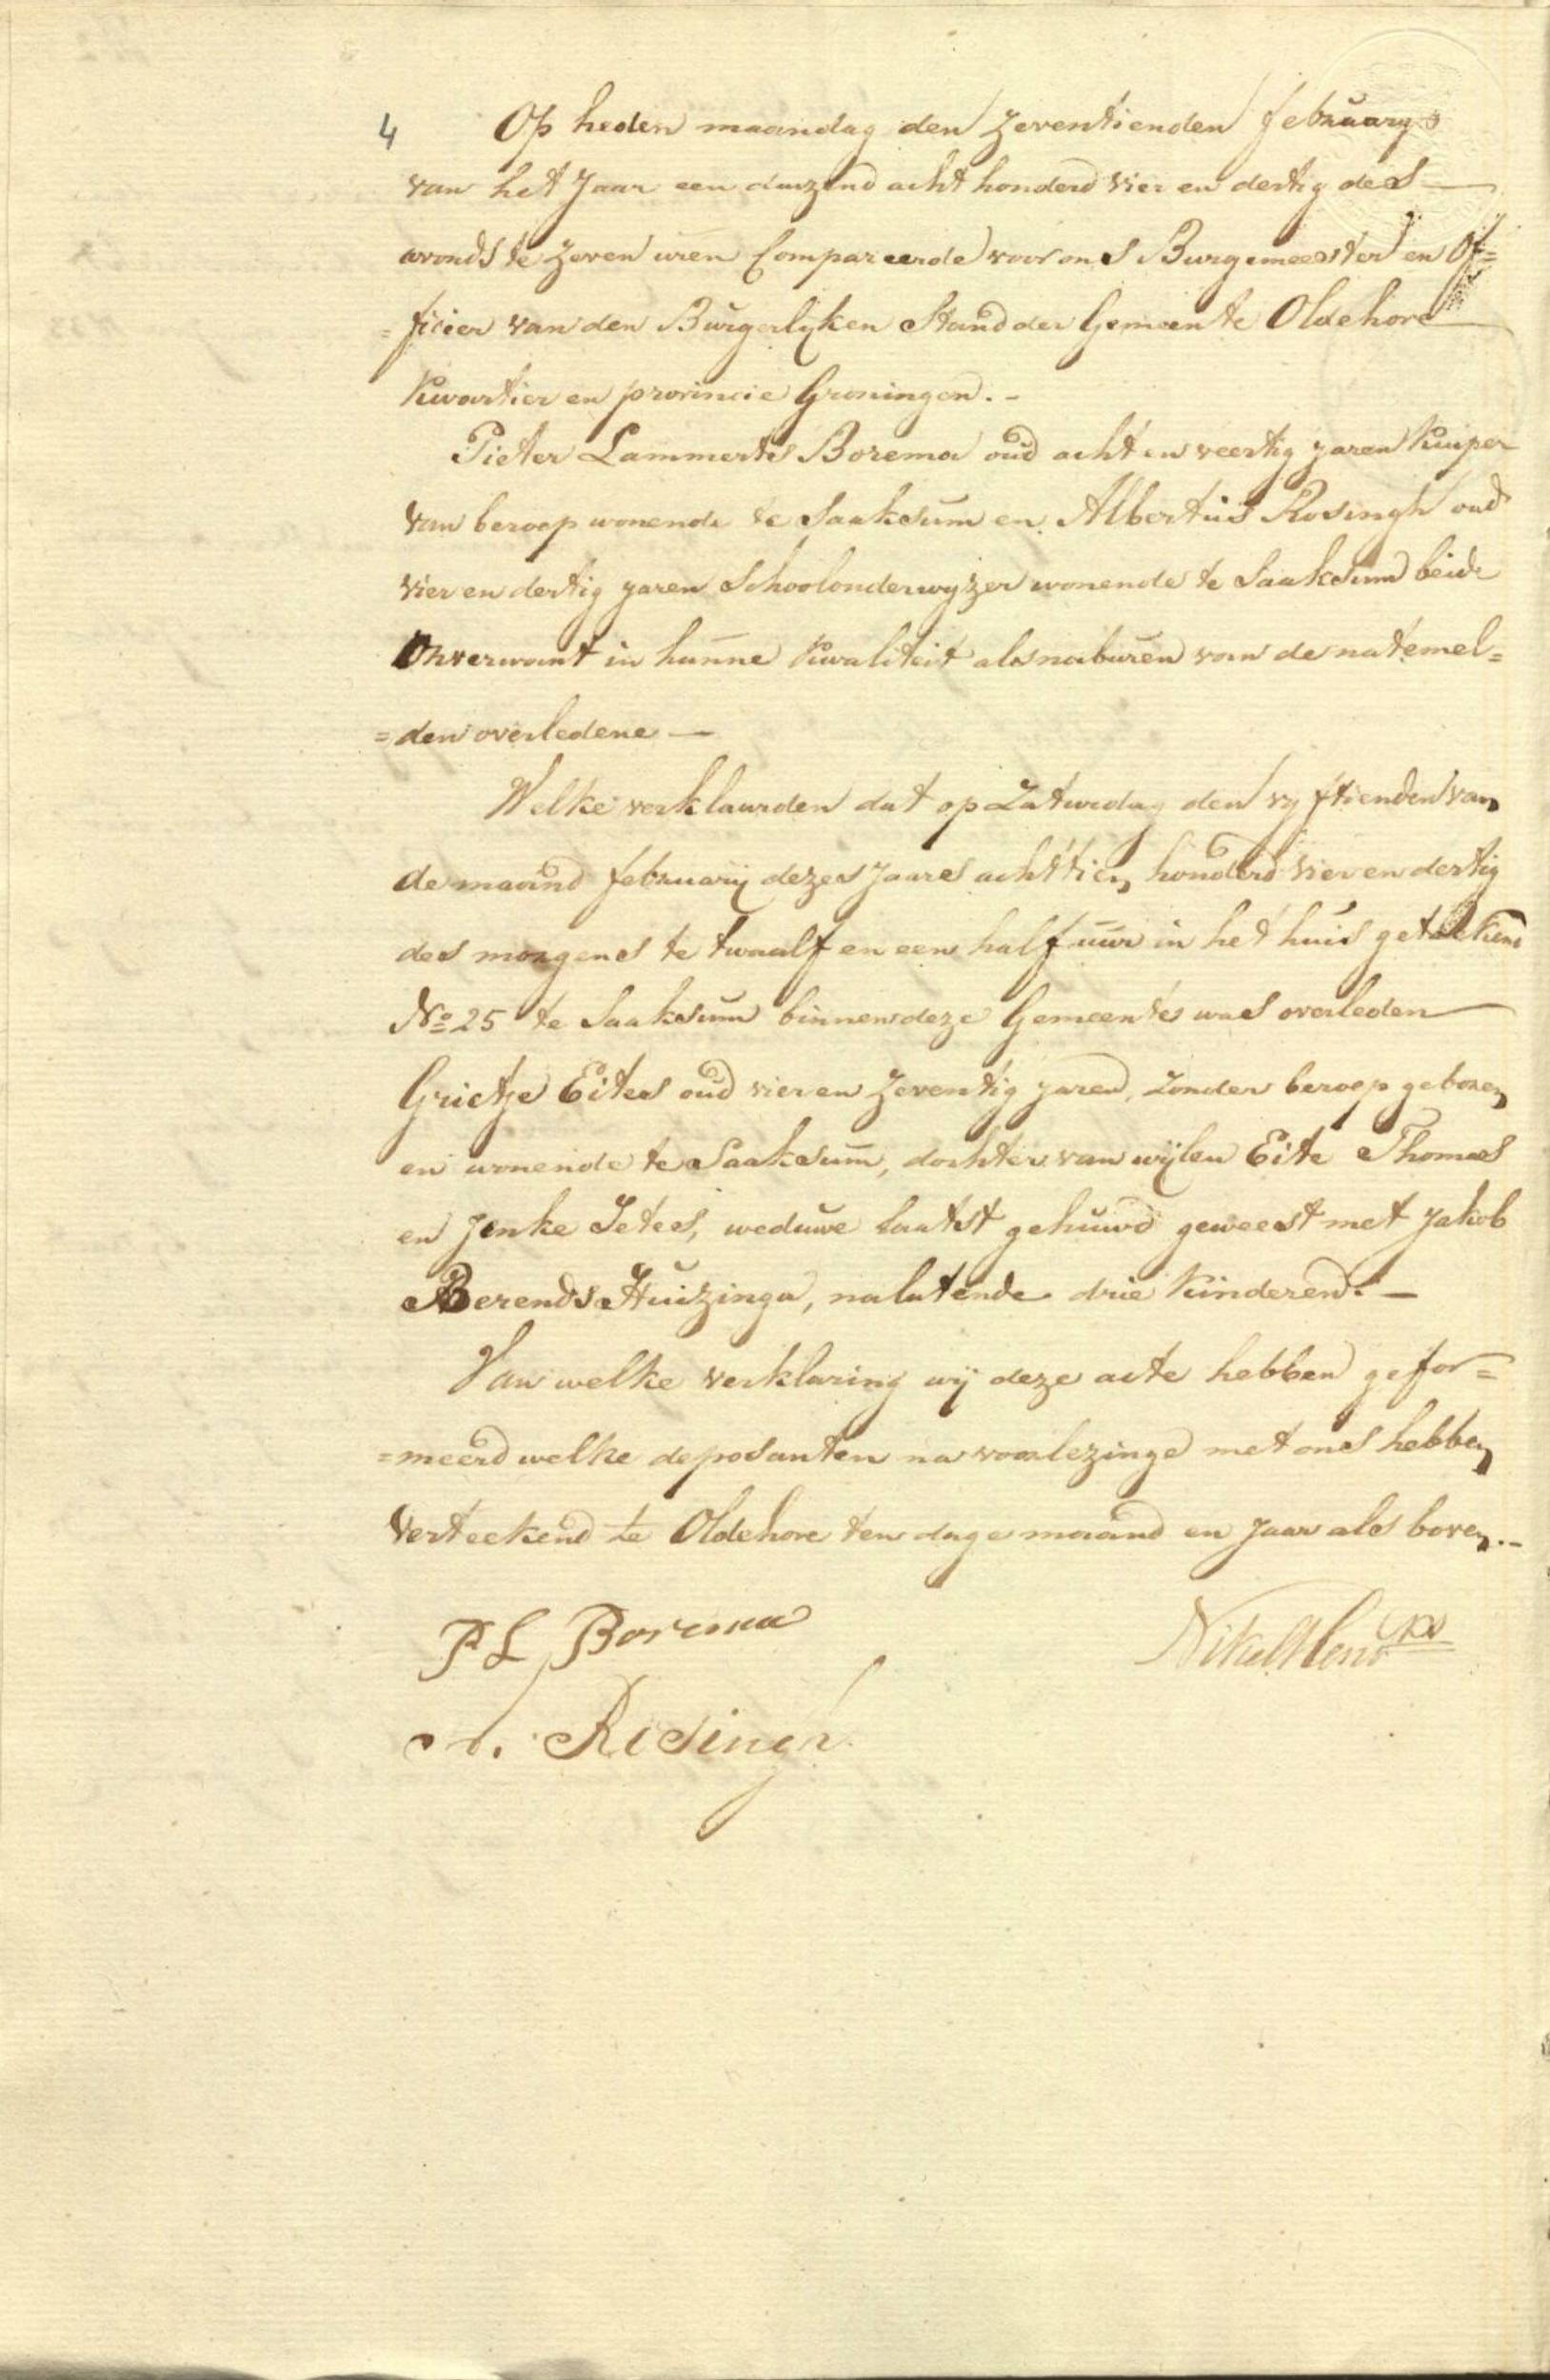 4 Op heden maandag den Zeventienden february
van het Jaar een duizend acht honderd vier en dertig des
avonds te zeven uren Compareerde voor ons Burgemeester en Of=
=ficier van den Burgerlyken Stand der Gemeente Oldehove
Kwartier en provincie Groningen.-
Pieter Lammerts Borema oud acht en veertig jaren Kuiper
van beroep wonende te Saaksum en Albertus Rosingh oud
vier en dertig jaren Schoolonderwyzer wonende te Saaksum beide
Onverwant in hunne Kwaliteit als naburen van de natemel=
=den overledene —
Welke verklaarden dat op Zaturdag den vyftienden van
de maand february dezes Jaares achttien honderd vier en dertig
des morgens te twaalf en een half uur in het huis geteekend
No 25 te Saaksum binnen deze Gemeente was overleden
Grietje Eites oud vier en Zeventig jaren, zonder beroep geboren
en wonende te Saaksum, dochter van wijlen Eite Thomas
en Jenke Jetees, weduwe laatst gehuwd geweest met Jakob
Berends Huizinga, nalatende drie Kinderen.—
Van welke verklaring wij deze acte hebben gefor=
=meerd welke deposanten na voorlezinge met ons hebben
Verteekend te Oldehove ten dage maand en Jaar als boven.-
P L Borema
A. Rosingh